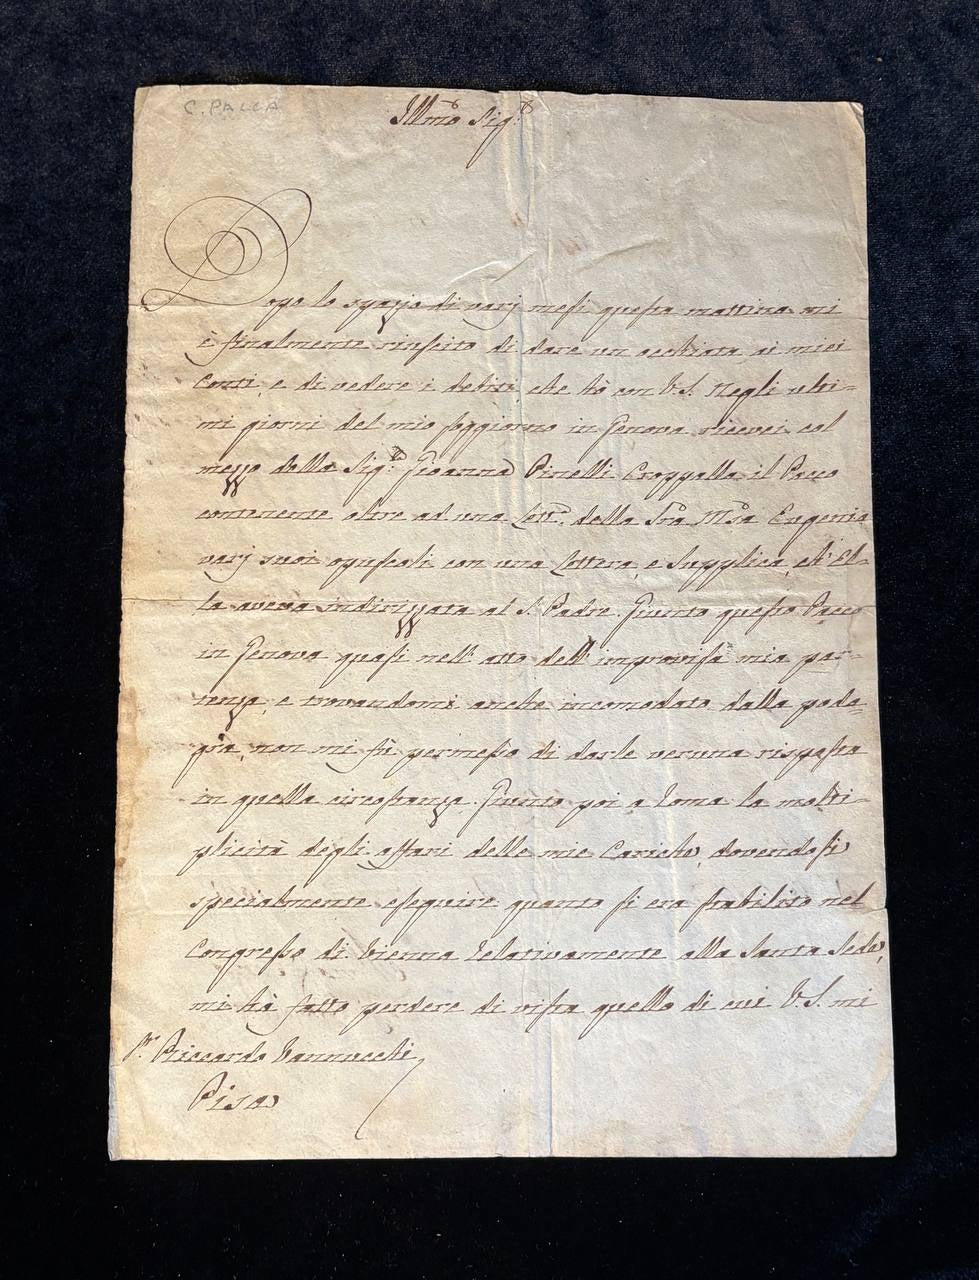 C. PACCA
Illmo Sigre
Dopo lo spazio di varj mesi questa mattina mi
è finalmente riuscito di dare un occhiata ai miei
Conti, e di vedere i debiti che hò con V.S. Negli ulti=
mi giorni del mio soggiorno in Genova ricevei col
mezzo della Sigra Gioanna Pinelli il Pacco
contenente oltre ad una Lett.a della Sra Mra Eugenia
varj suoi opuscoli con una Lettera, e Supplica, ch' El=
la aveva indirizzata al S. Padre. Giunto questo Pacco
in Genova quasi nell' atto dell' improvisa mia par=
tenza, e trovandomi anche incomodato dalla poda=
gra, non mi fù permesso di darle veruna risposta
in quella circostanza. Giunto poi a Roma la molti=
plicità degli affari delle mie Cariche, dovendosi
specialmente eseguire quanto si era stabilito nel
Congresso di Vienna relativamente alla Santa Sede,
mi hà fatto perdere di vista quello di cui V.S. mi
Sr Riccardo Vannucchi
Pisa